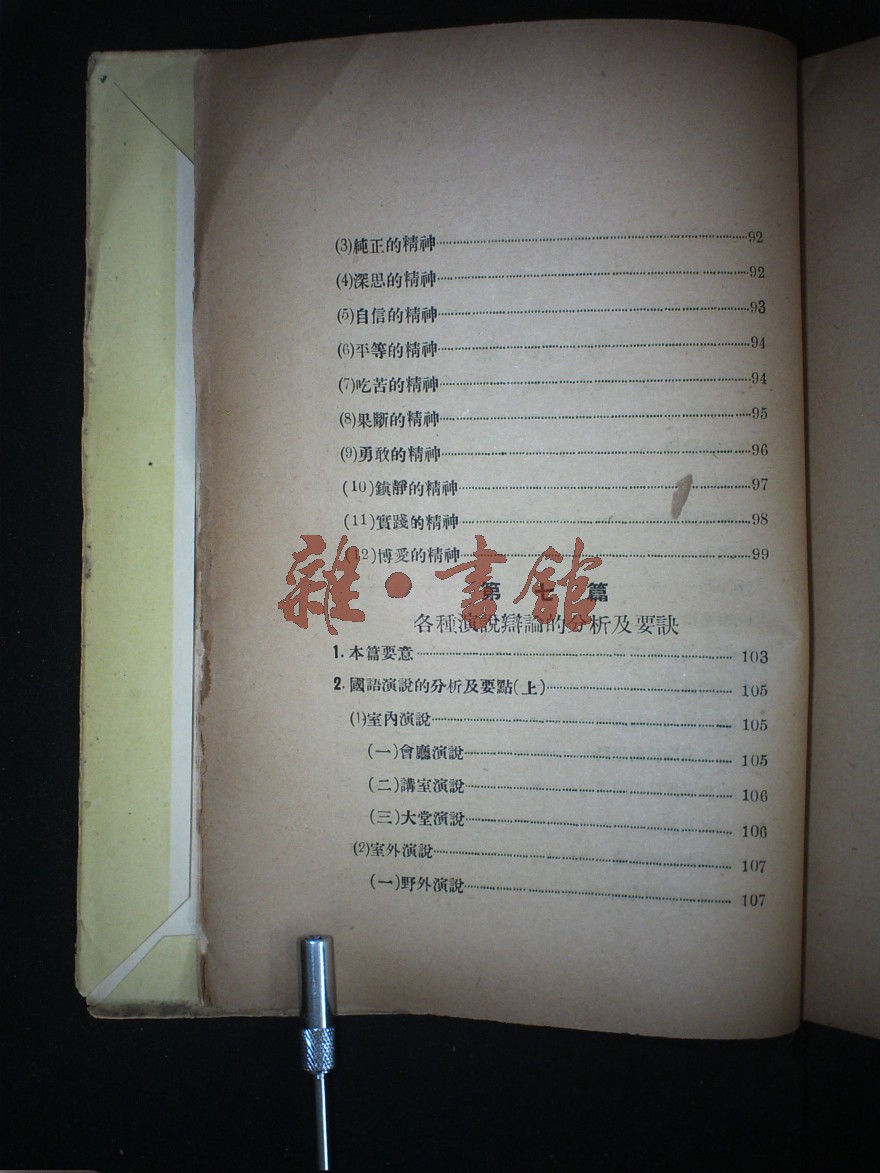 (3)純正的精神……92
(4)深思的精神……92
(5)自信的精神……93
(6)平等的精神……94
(7)吃苦的精神……94
(8)果斷的精神……95
(9)勇敢的精神……96
(10)鎮靜的精神……97
(11)實踐的精神……98
(12)博愛的精神……99
雜·書館
第七篇
各種演說辯論的分析及要訣
1.本篇要意……103
2.國語演說的分析及要點(上)……105
(1)室內演說……105
(一)會廳演說……105
(二)講室演說……106
(三)大堂演說……106
(2)室外演說……107
(一)野外演說……107